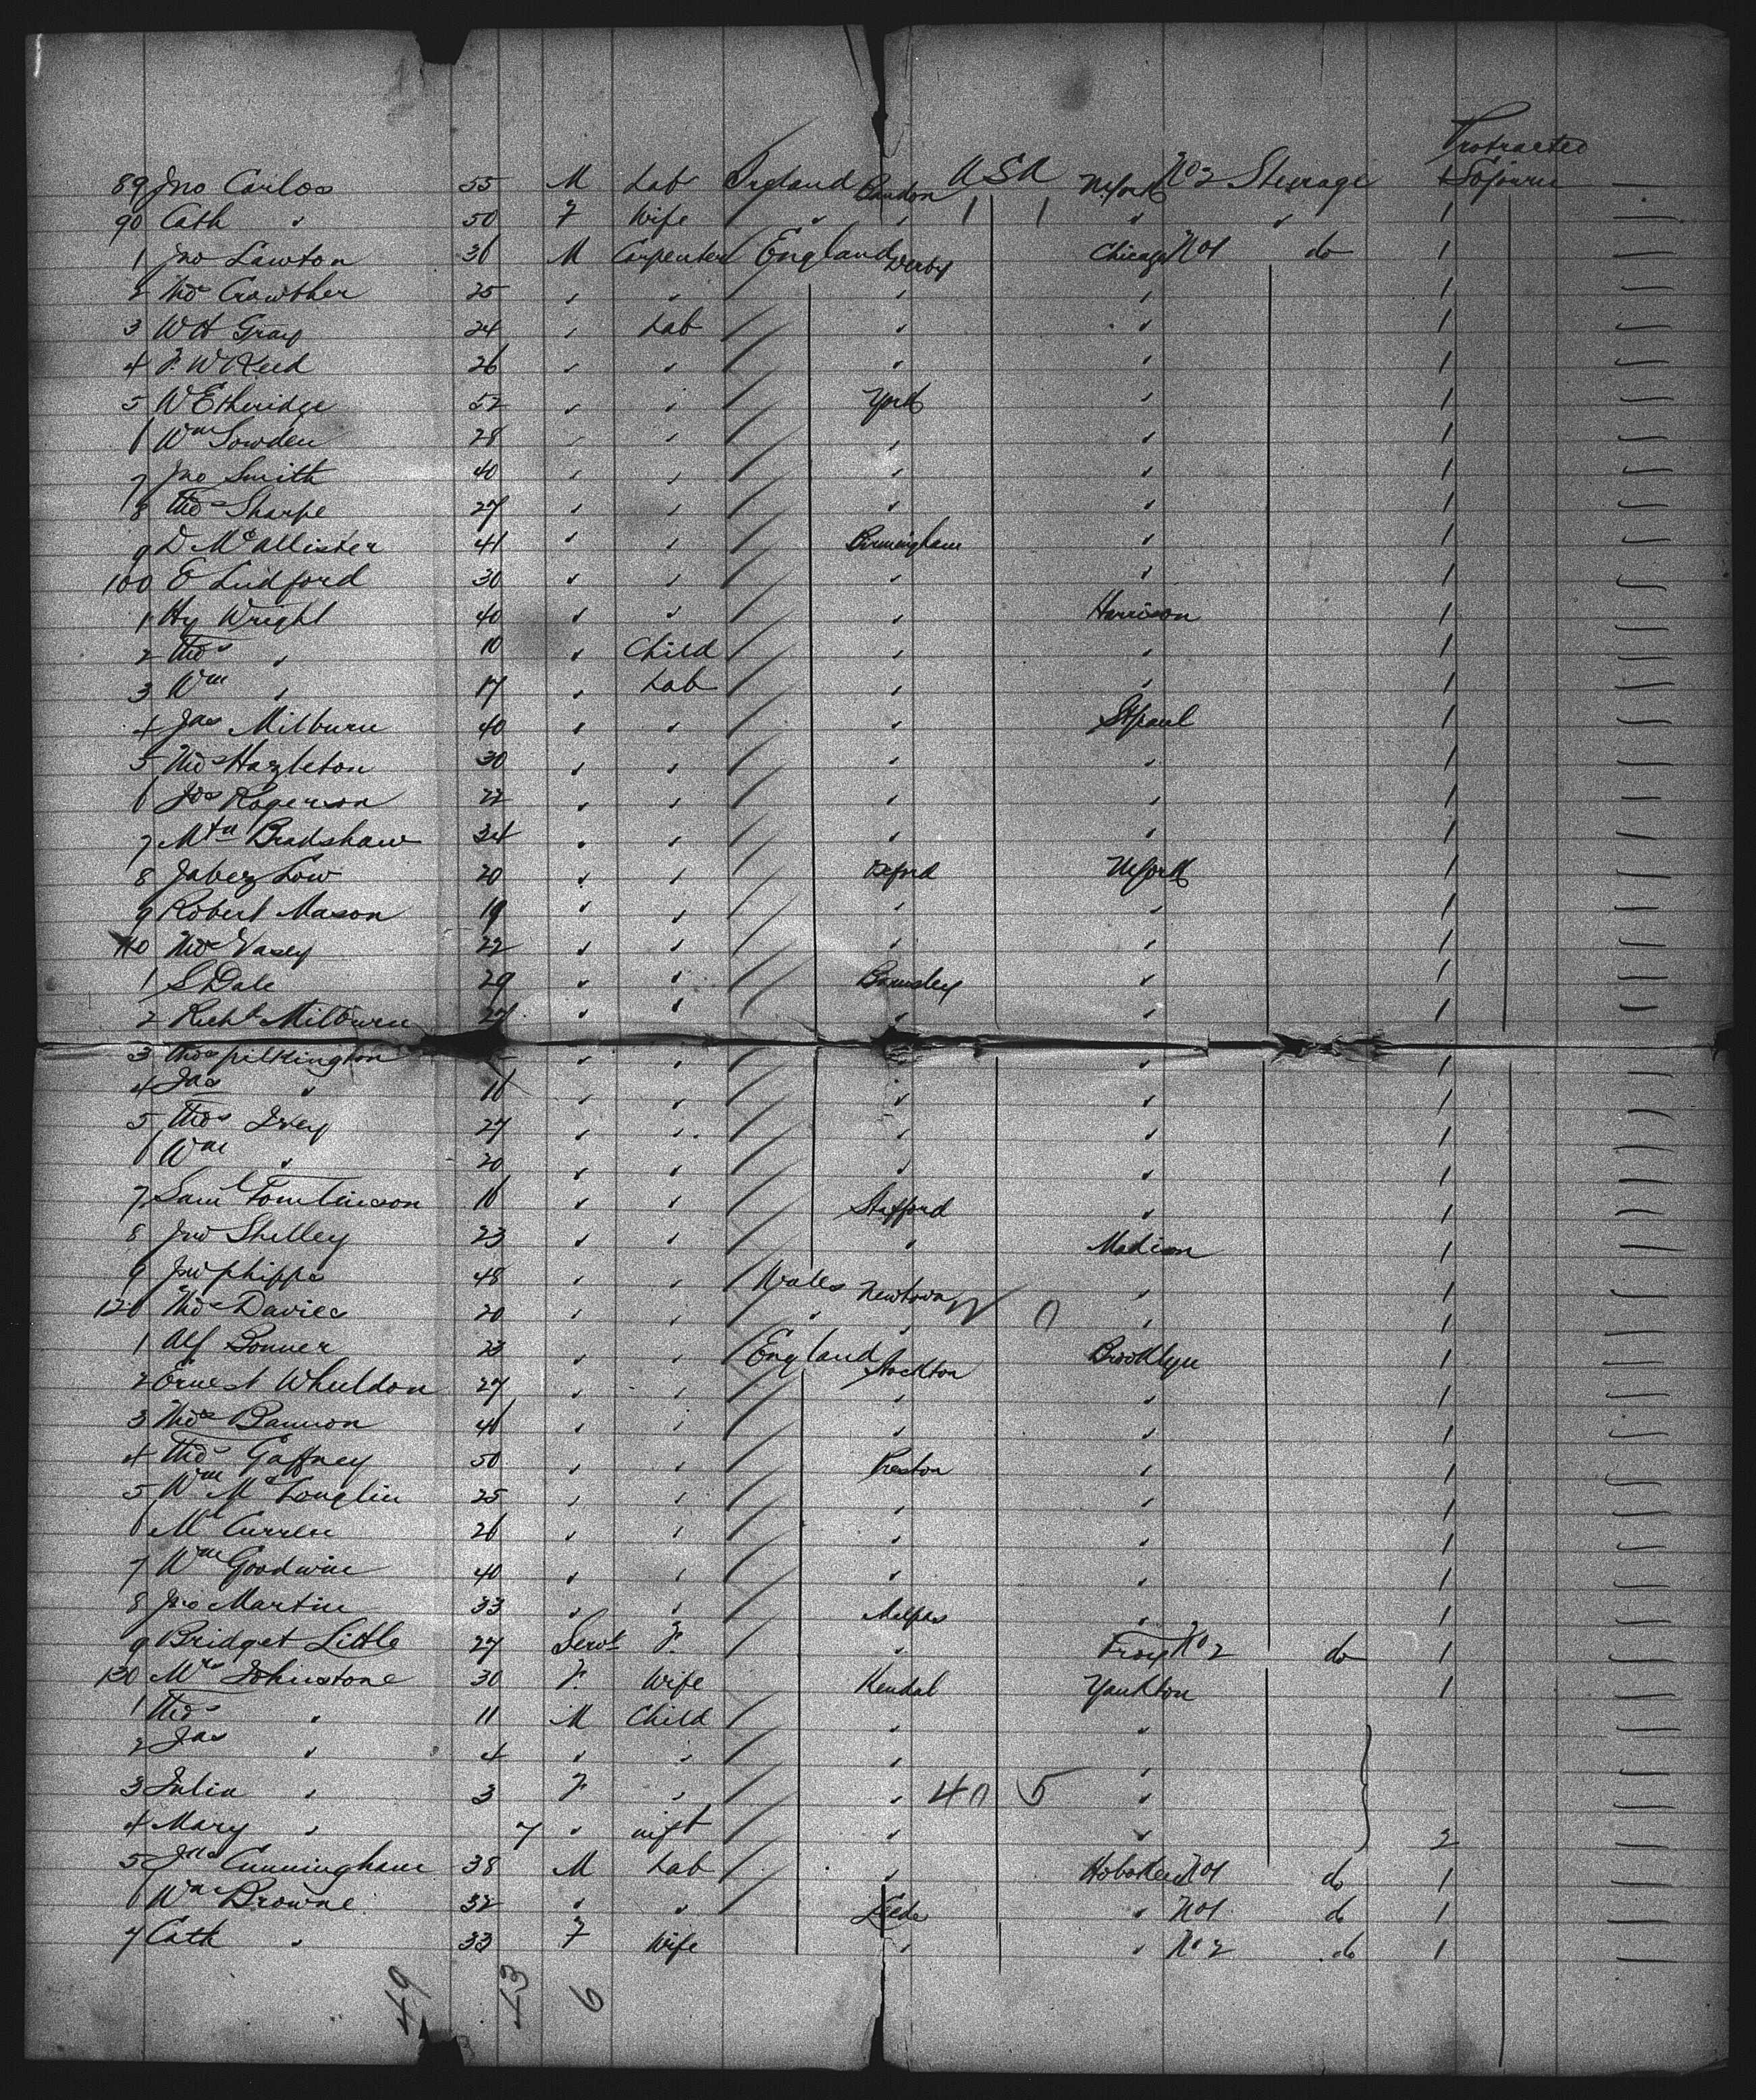 Protracted
89 Jno Carlos 55 M Lab Ireland Bandon USA N. York No 2 Steerage Sojourn
90 Cath " 50 F Wife " " " " 1
1 Jno Lawton 36 M Carpenter England Derby Chicago No 1 do 1
2 Thos Crowther 25 " " " " 1
3 W H Gray 24 " Lab " " 1
4 F. W Reed 26 " " " " 1
5 W Etheridge 52 " " York " 1
6 Wm Sowden 28 " " " " 1
7 Jno Smith 40 " " " " 1
8 Thos Sharpe 27 " " " " 1
9 D McAllister 41 " " Birmingham " 1
100 E Ludford 30 " " " " 1
1 Hy Wright 40 " " " Harrison 1
2 Thos " 10 " Child " " 1
3 Wm " 17 " Lab " " 1
4 Jas Milburn 40 " " " St paul 1
5 Thos Hazleton 30 " " " " 1
6 Jos Rogerson 22 " " " " 1
7 Mtn Bradshaw 34 " " " " 1
8 Jabez Low 20 " " N York 1
9 Robert Mason 19 " " " " 1
110 Thos Vasey 22 " " " " 1
1 S Dale 29 " " Barnsley " 1
2 Richd Milburn 27 " " " " 1
3 Thos pilkington " " " " 1
4 Jas " 16 " " " " 1
5 Thos Ivey 27 " " " " 1
6 Wm " 20 " " " " 1
7 Saml Tomlinson 16 " " Stafford " 1
8 Jno Shelley 23 " " " Madison 1
9 Jno phipps 48 " " Wales Newtown " 1
120 Thos Davies 20 " " " " " 1
1 Alf Bonner 23 " " England Stockton Brooklyn 1
2 Ernest Wheeldon 27 " " " " 1
3 Thos Bannon 46 " " " " 1
4 Thos Gaffney 50 " " Preston " 1
5 Wm McLouglin 25 " " " " 1
6 Ml Curren 26 " " " " 1
7 Wm Goodwin 40 " " " " 1
8 Jno Martin 33 " " Malpas " 1
9 Bridget Little 27 Servt F. " Troy No 2 do 1
130 Mrs Johnstone 30 F. Wife Kendal Yankton 1
1 Thos " 11 M Child " "
2 Jas " 4 " " " "
3 Julia " 3 F " " 40 5 "
4 Mary " 7 " inft " " 2
5 Jno Cunningham 38 M Lab " Hoboken No 1 do 1
6 Wm Browne 32 " " Leeds " No 1 do 1
7 Cath " 33 F Wife " " No 2 do 1
49 43 6